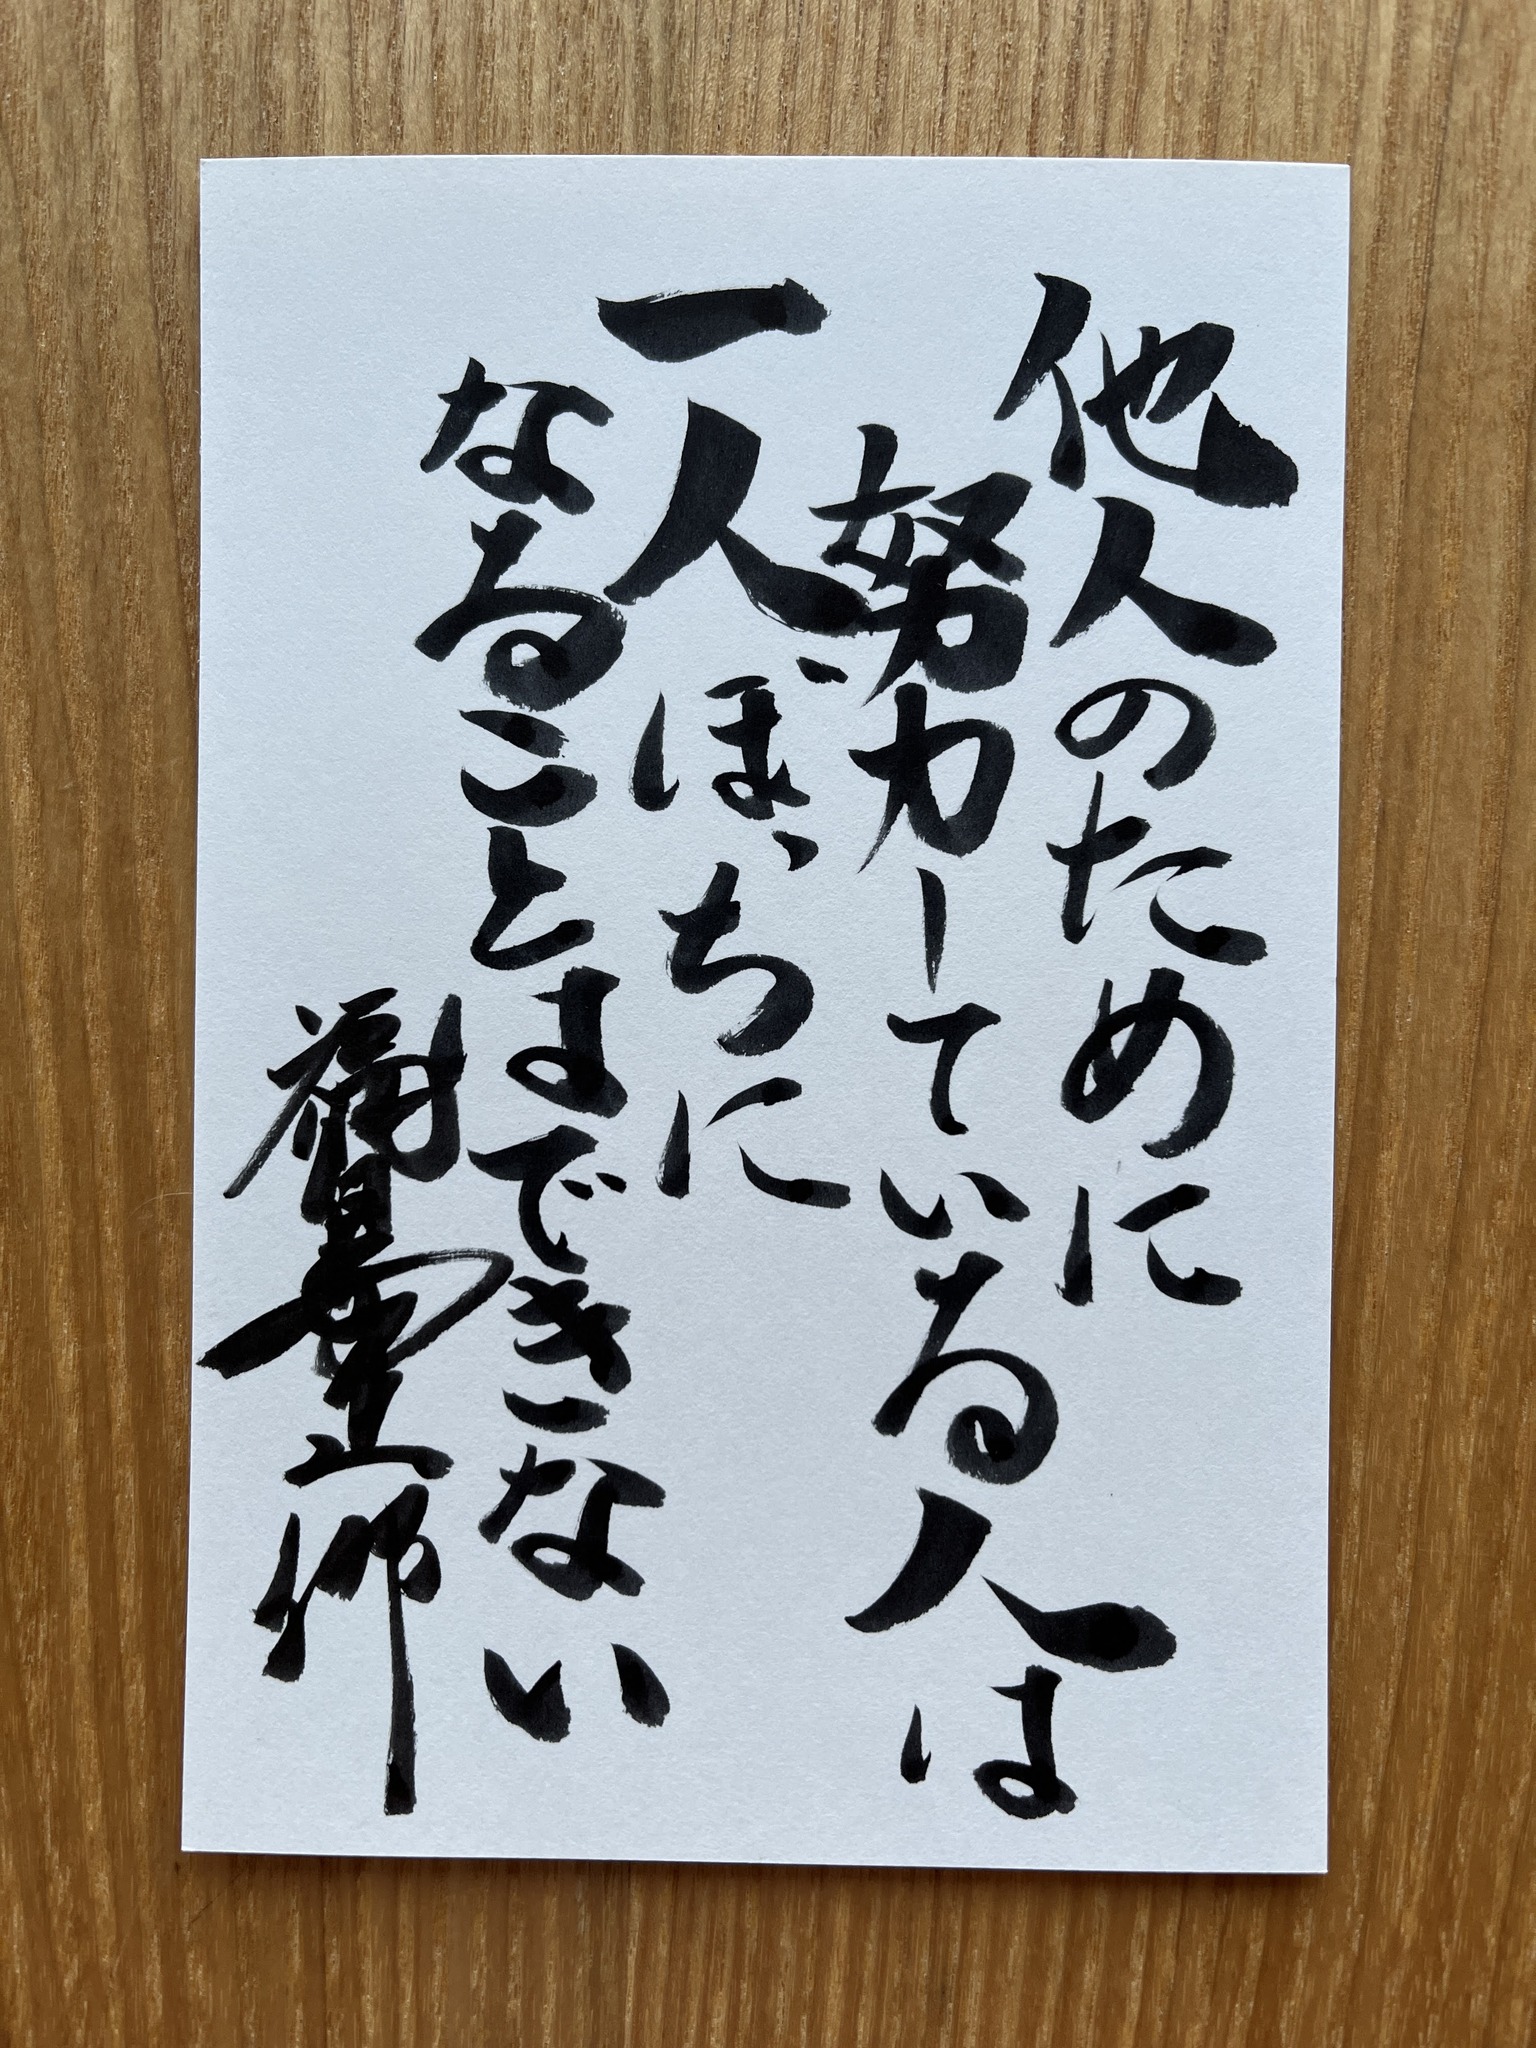 他人のために
努力している人は
一人ぼっちに
なることはできない